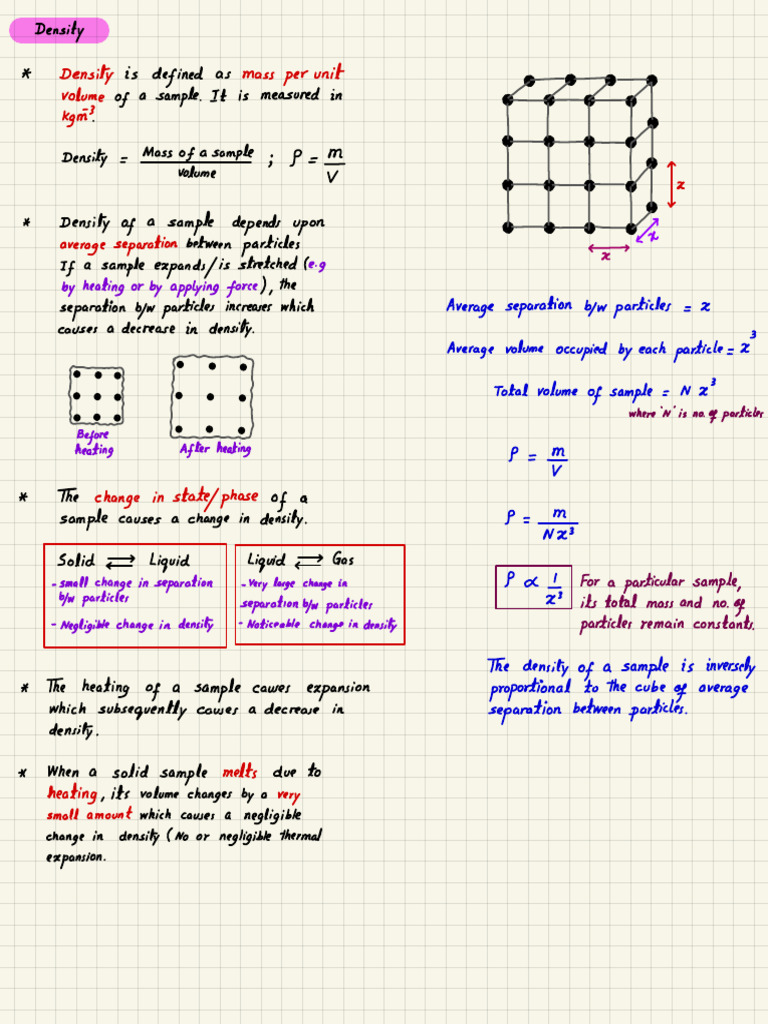 Density
* Density is defined as mass per unit
volume of a sample. It is measured in
kgm⁻³.
Density = Mass of a sample / volume ; ρ = m / V
* Density of a sample depends upon
average separation between particles
If a sample expands/is stretched (e.g
by heating or by applying force), the
separation b/w particles increases which
causes a decrease in density.
Before
heating
After heating
* The change in state/phase of a
sample causes a change in density.
Solid ⇄ Liquid
- small change in separation
b/w particles
- Negligible change in density
Liquid ⇄ Gas
- Very large change in
separation b/w particles
- Noticeable change in density
* The heating of a sample causes expansion
which subsequently causes a decrease in
density.
* When a solid sample melts due to
heating, its volume changes by a very
small amount which causes a negligible
change in density (No or negligible thermal
expansion.
x
x
x
Average separation b/w particles = x
Average volume occupied by each particle = x³
Total volume of sample = N x³
where 'N' is no. of particles
ρ = m / V
ρ = m / Nx³
ρ ∝ 1 / x³
For a particular sample,
its total mass and no. of
particles remain constants.
The density of a sample is inversely
proportional to the cube of average
separation between particles.